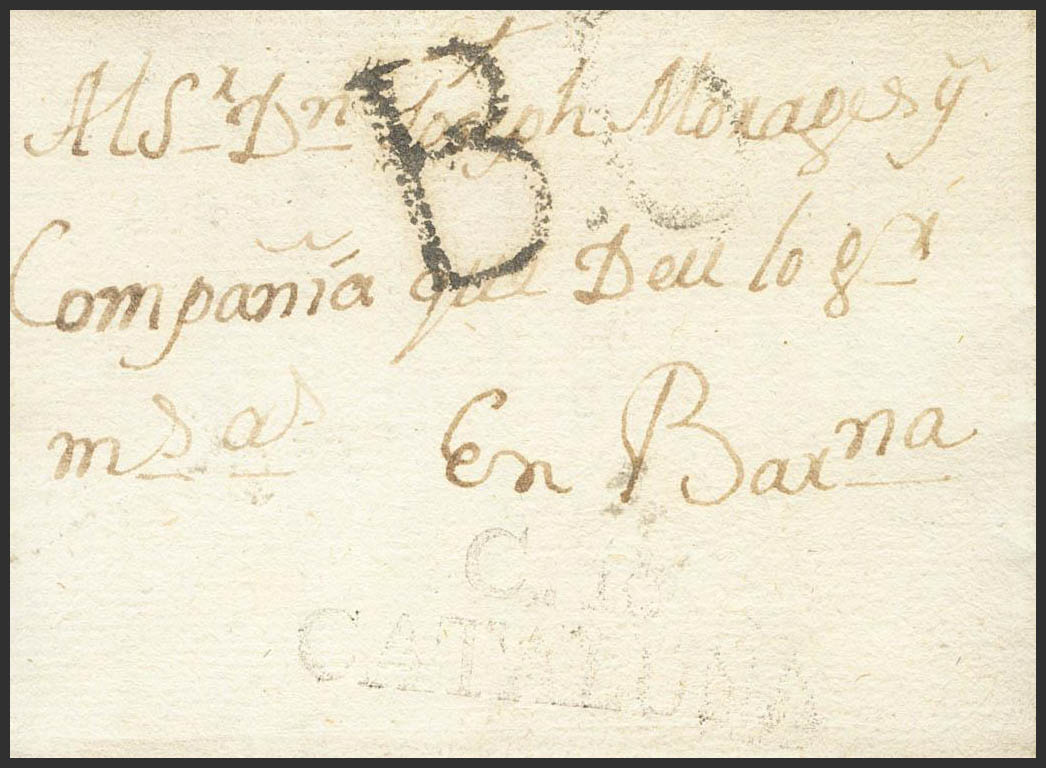 B 6
Al S.r D.n Joseph Morages y
Compañia que Deu lo g.r
m.s a.s En Bar.na
C.
CATALUÑA